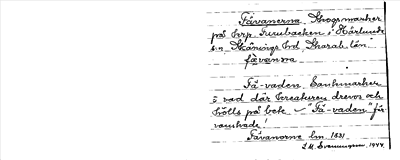 Fävanerna, Skogsmarker
på krp. Furubacken i Härlunda
s:n Skånings hd Skarab. län.
fävanva
Fä-vaden. Sankmarker
= vad där kreaturen drevos och
hölls på bete "Fä-vaden" för
vanskade!
Fävanorne lm. 1831.
L.M. Svenungsson, 1944.